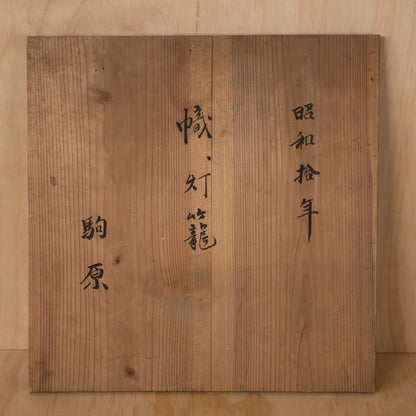 昭和拾年
幟、灯籠
駒原